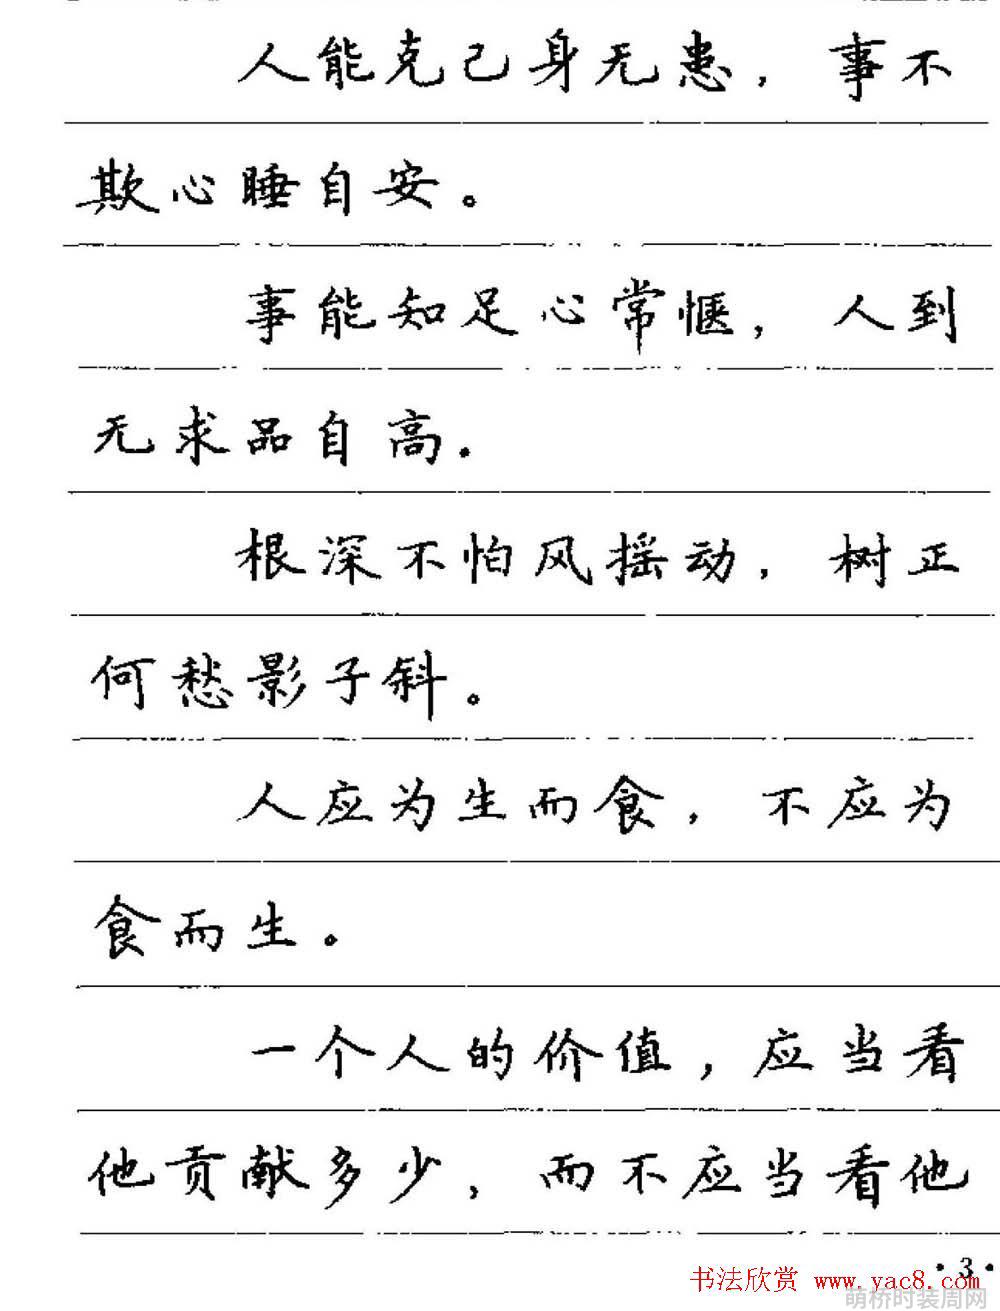 人能克己身无患，事不
欺心睡自安。
事能知足心常惬，人到
无求品自高．
根深不怕风摇动，树正
何愁影子斜。
人应为生而食，不应为
食而生。
一个人的价值，应当看
他贡献多少，而不应当看他
·3·
书法欣赏 www.yac8.com
萌桥时装周网